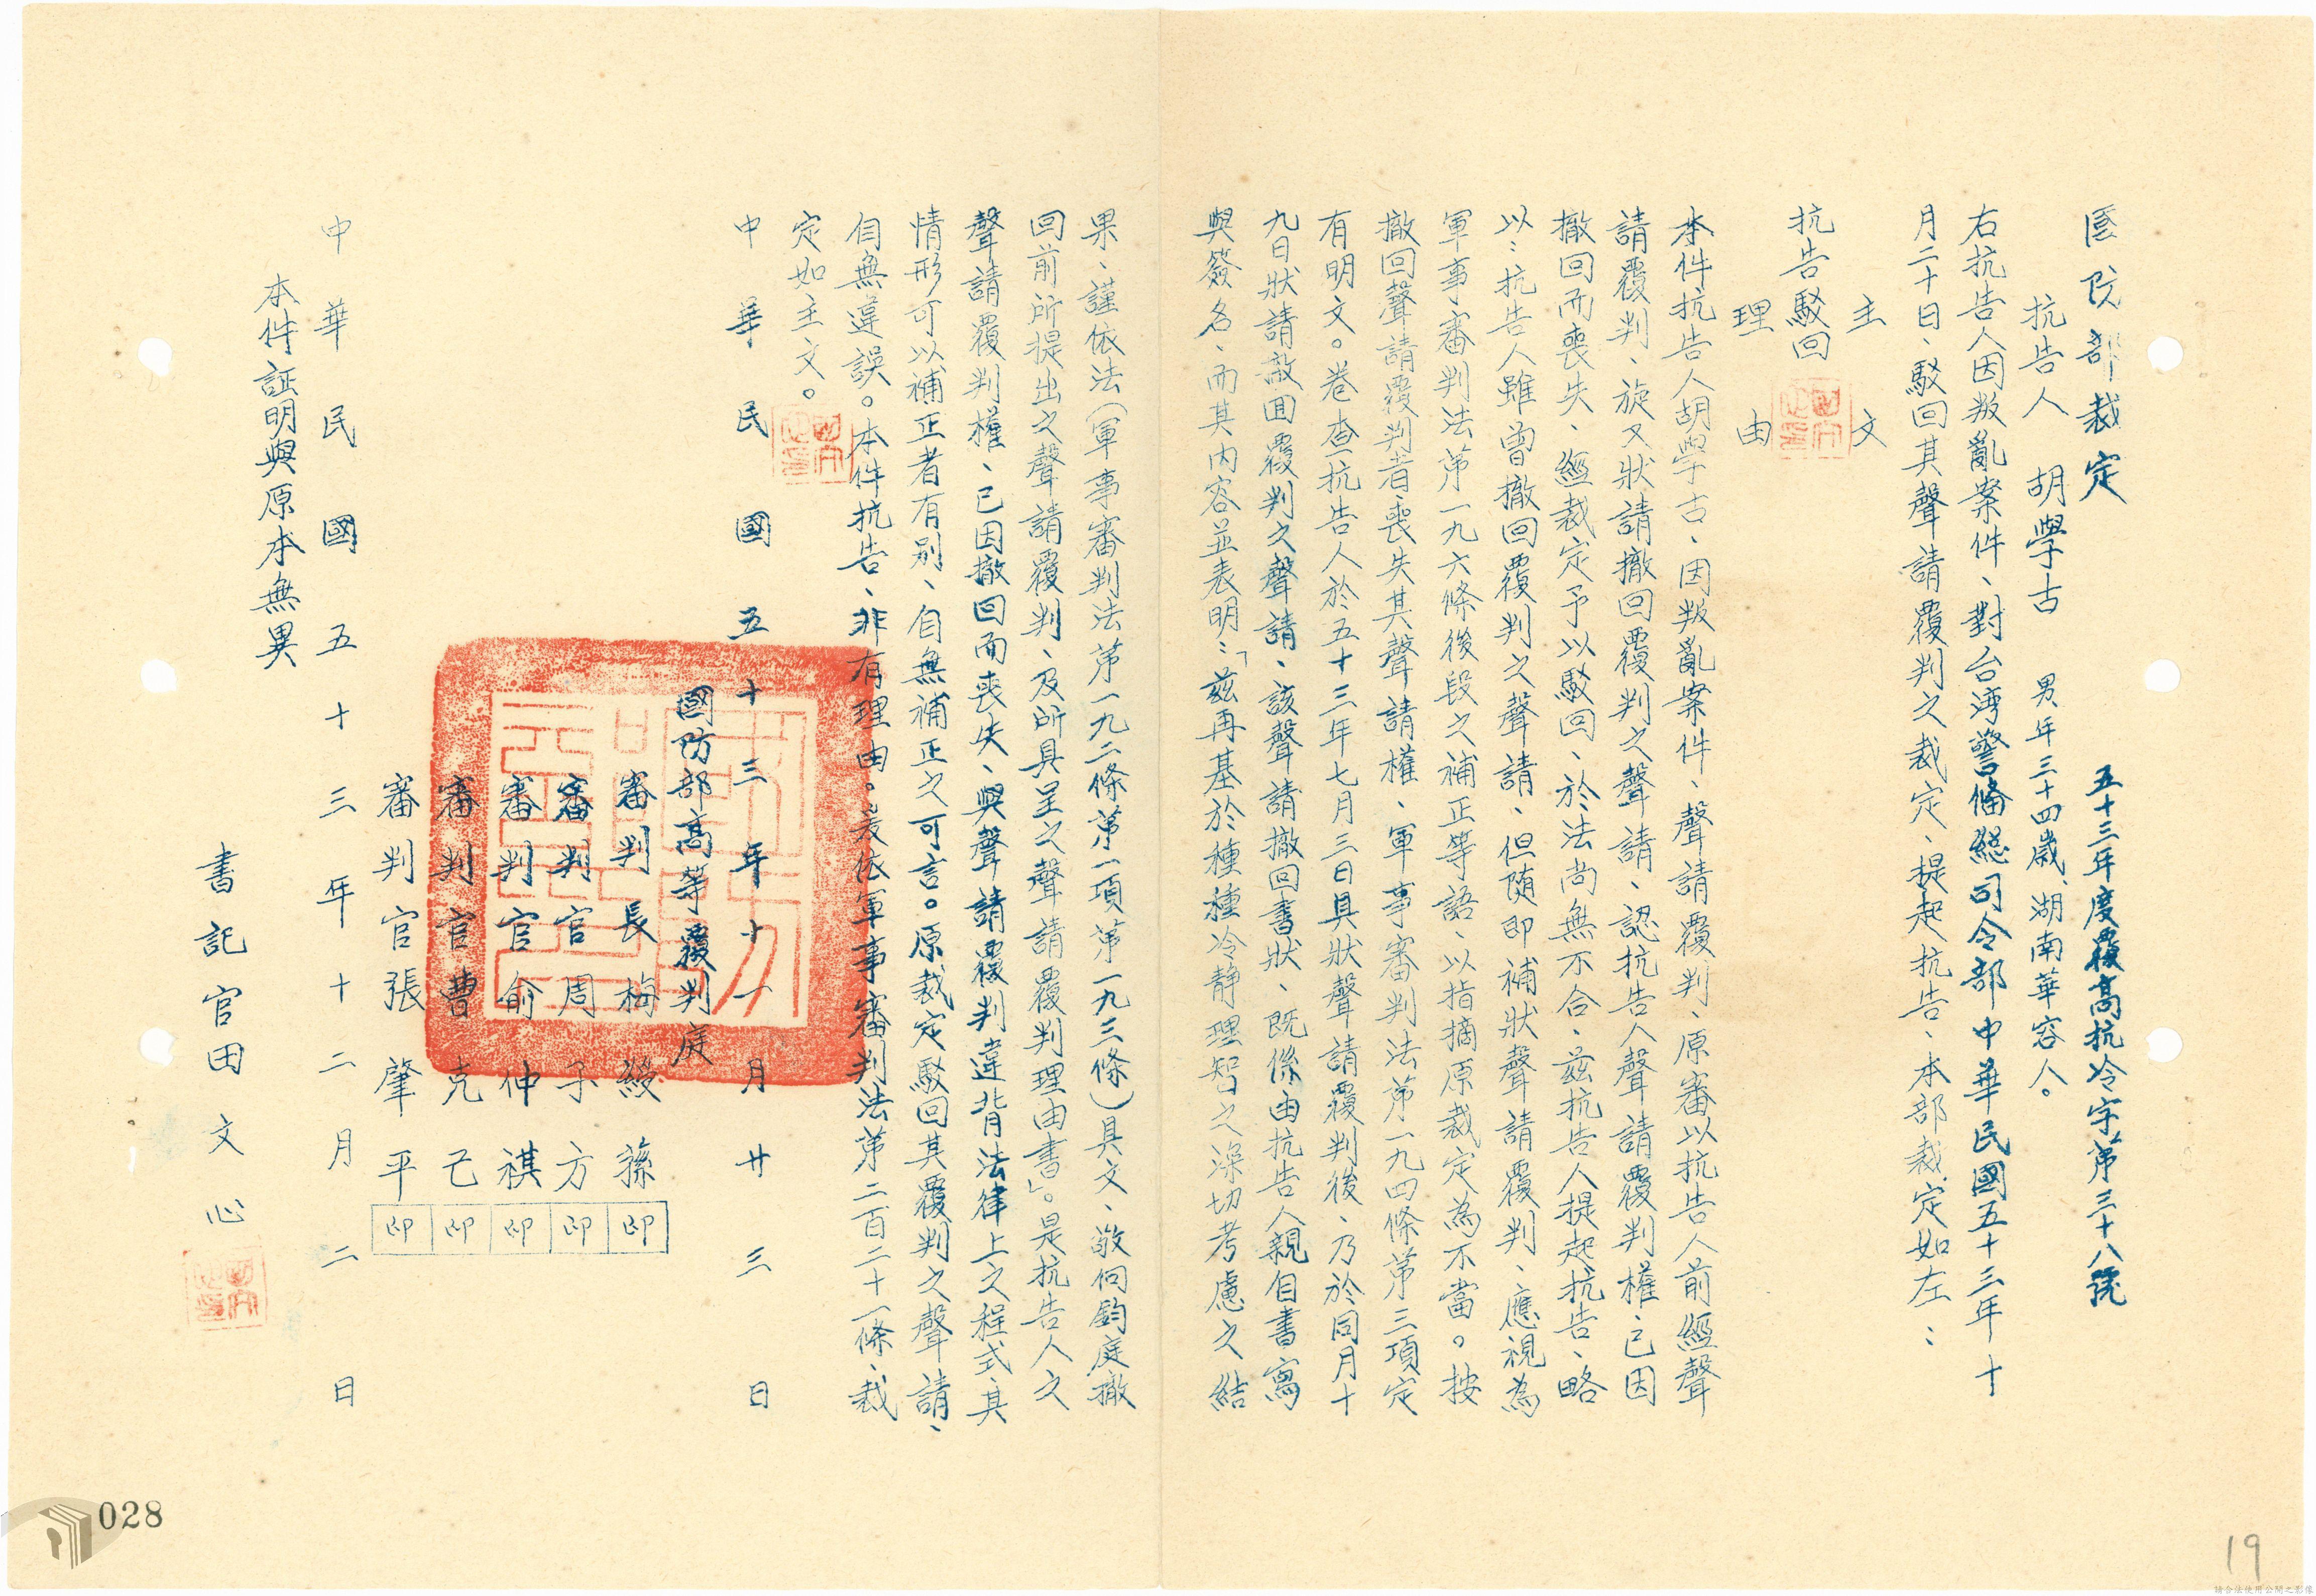 國防部裁定　五十三年度覆高抗冷字第三十八號
抗告人　胡學古　男年三十四歲、湖南華容人。
右抗告人因叛亂案件、對台湾警备總司令部中華民國五十三年十
月二十日、駁回其聲請覆判之裁定、提起抗告、本部裁定如左：
主文
抗告駁回
理由
本件抗告人胡學古、因叛亂案件、聲請覆判、原審以抗告人前經聲
請覆判、旋又狀請撤回覆判之聲請、認抗告人聲請覆判權、已因
撤回而喪失、經裁定予以駁回、於法尚無不合、茲抗告人提起抗告、略
以：抗告人雖曾撤回覆判之聲請、但随即補狀聲請覆判、應視為
軍事審判法第一九六條後段之補正等語、以指摘原裁定為不當。按
撤回聲請覆判者喪失其聲請權、軍事審判法第一九四條第三項定
有明文。卷查抗告人於五十三年七月三日具狀聲請覆判後、乃於同月十
九日狀請撤回覆判之聲請、該聲請撤回書狀、既係由抗告人親自書寫
與簽名、而其內容並表明：「茲再基於種種冷靜理智之深切考慮之結
果、謹依法（軍事審判法第一九二條第一項第一九三條）具文、敬向鈞庭撤
回前所提出之聲請覆判、及所具呈之聲請覆判理由書」。是抗告人之
聲請覆判權、已因撤回而喪失、與聲請覆判違背法律上之程式、其
情形可以補正者有别、自無補正之可言。原裁定駁回其覆判之聲請、
自無違誤。本件抗告、非有理由。爰依軍事審判法第二百二十一條、裁
定如主文。
中華民國五十三年十一月廿三日
國防部高等覆判庭
審判長梅綬蓀印
審判官周子方印
審判官俞仲祺印
審判官曹克己印
審判官張肇平印
中華民國五十三年十二月二日
本件証明與原本無異
書記官田文心
028
19
請合法使用公開之影像